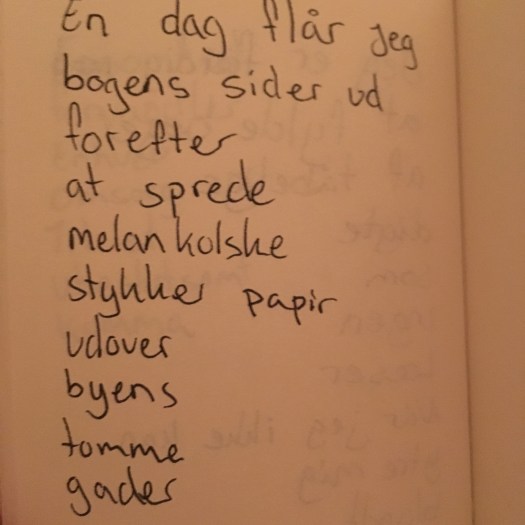 En dag flår jeg
bogens sider ud
forefter
at sprede
melankolske
stykker papir
udover
byens
tomme
gader